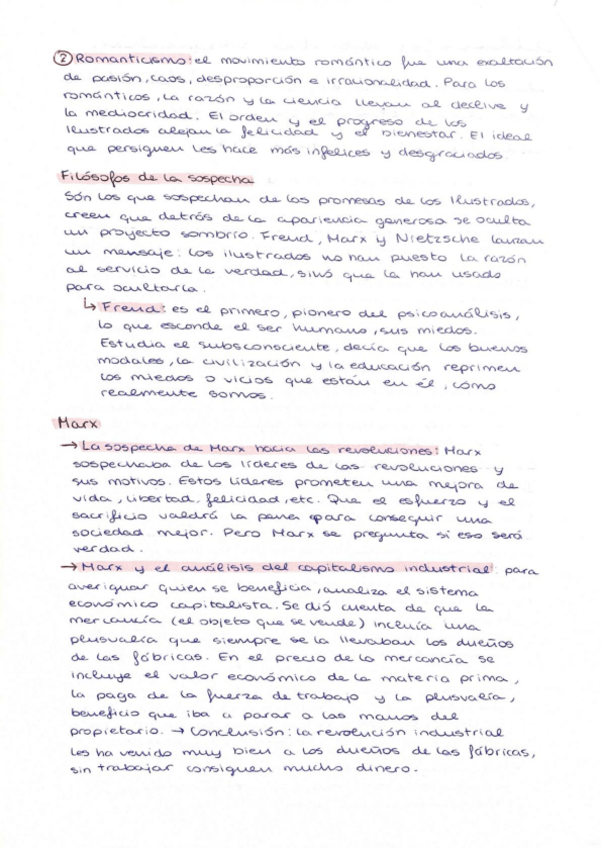 ② Romanticismo: el movimiento romántico fue una exaltación
de pasión, caos, desproporción e irracionalidad. Para los
románticos, la razón y la ciencia llevan al declive y
la mediocridad. El orden y el progreso de los
Ilustrados alejan la felicidad y el bienestar. El ideal
que persiguen les hace más infelices y desgraciados.
Filósofos de la sospecha
Són los que sospechan de las promesas de los Ilustrados,
creen que detrás de la apariencia generosa se oculta
un proyecto sombrío. Freud, Marx y Nietzsche lanzan
un mensaje: los ilustrados no han puesto la razón
al servicio de la verdad, sinó que la han usado
para ocultarla.
↳ Freud: es el primero, pionero del psicoanálisis,
lo que esconde el ser humano, sus miedos.
Estudia el subsconsciente, decía que los buenos
modales, la civilización y la educación reprimen
los miedos o vicios que están en él, cómo
realmente somos.
Marx
→ La sospecha de Marx hacia las revoluciones: Marx
sospechaba de los líderes de las revoluciones y
sus motivos. Estos líderes prometen una mejora de
vida, libertad, felicidad, etc. Que el esfuerzo y el
sacrificio valdrá la pena para conseguir una
sociedad mejor. Pero Marx se pregunta si eso será
verdad.
→ Marx y el análisis del capitalismo industrial: para
averiguar quien se beneficia, analiza el sistema
económico capitalista. Se dió cuenta de que la
mercancía (el objeto que se vende) incluía una
plusvalía que siempre se la llevaban los dueños
de las fábricas. En el precio de la mercancía se
incluye el valor económico de la materia prima,
la paga de la fuerza de trabajo y la plusvalía,
beneficio que iba a parar a las manos del
propietario. → Conclusión: la revolución industrial
les ha venido muy bien a los dueños de las fábricas,
sin trabajar consiguen mucho dinero.